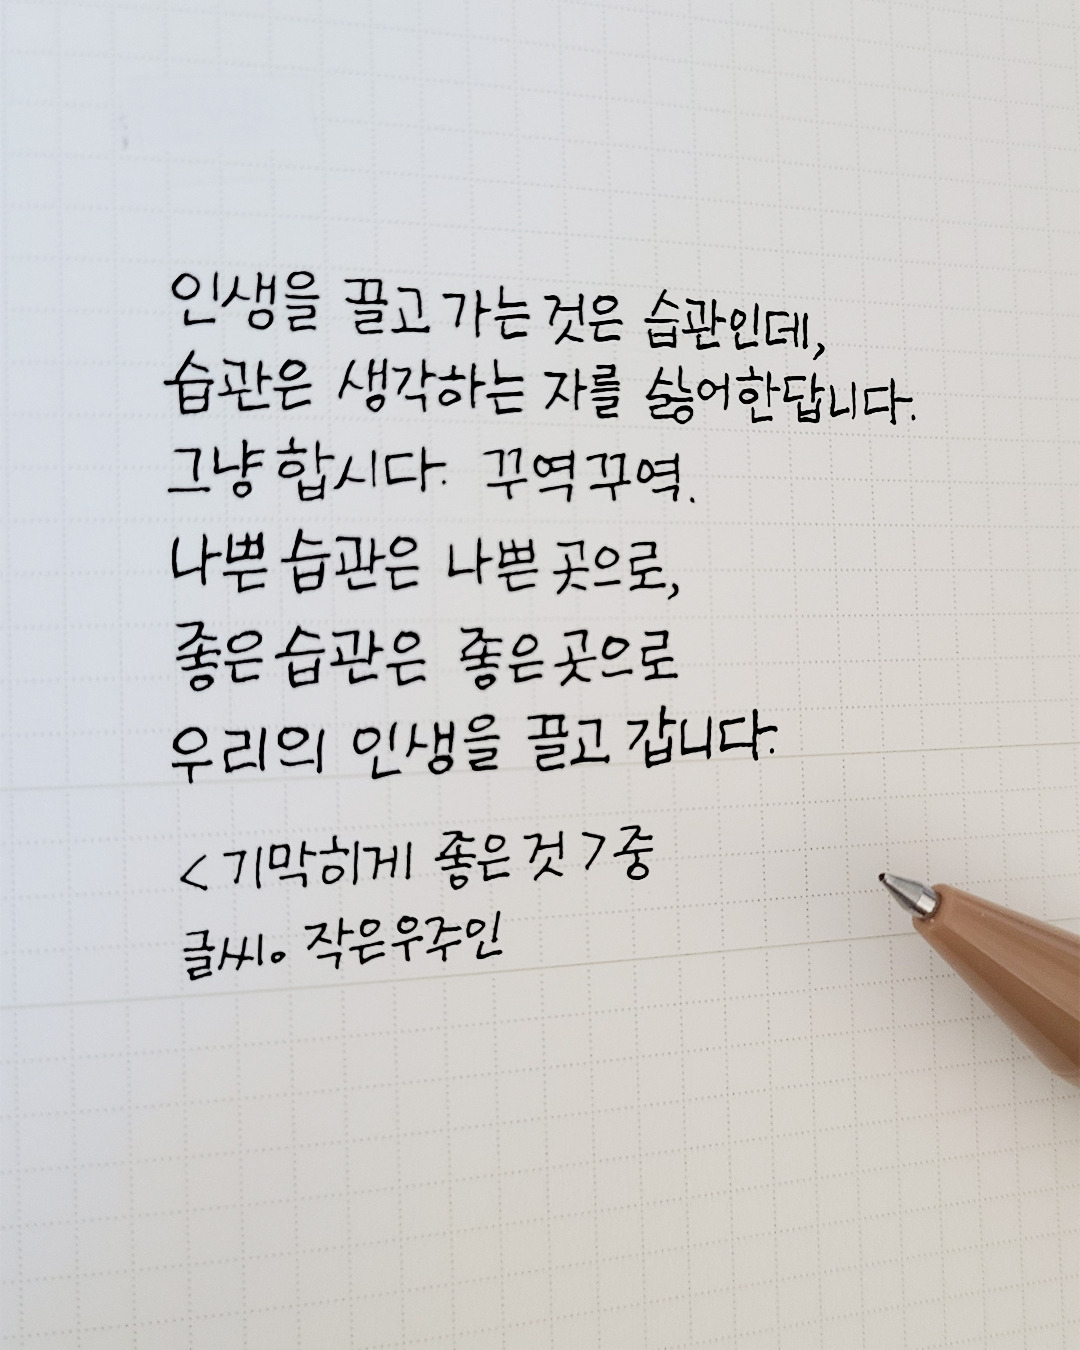 인생을 끌고 가는 것은 습관인데,
습관은 생각하는 자를 싫어한답니다.
그냥 합시다. 꾸역꾸역.
나쁜 습관은 나쁜 곳으로,
좋은 습관은 좋은 곳으로
우리의 인생을 끌고 갑니다.
<기막히게 좋은 것>중
글씨。작은우주인